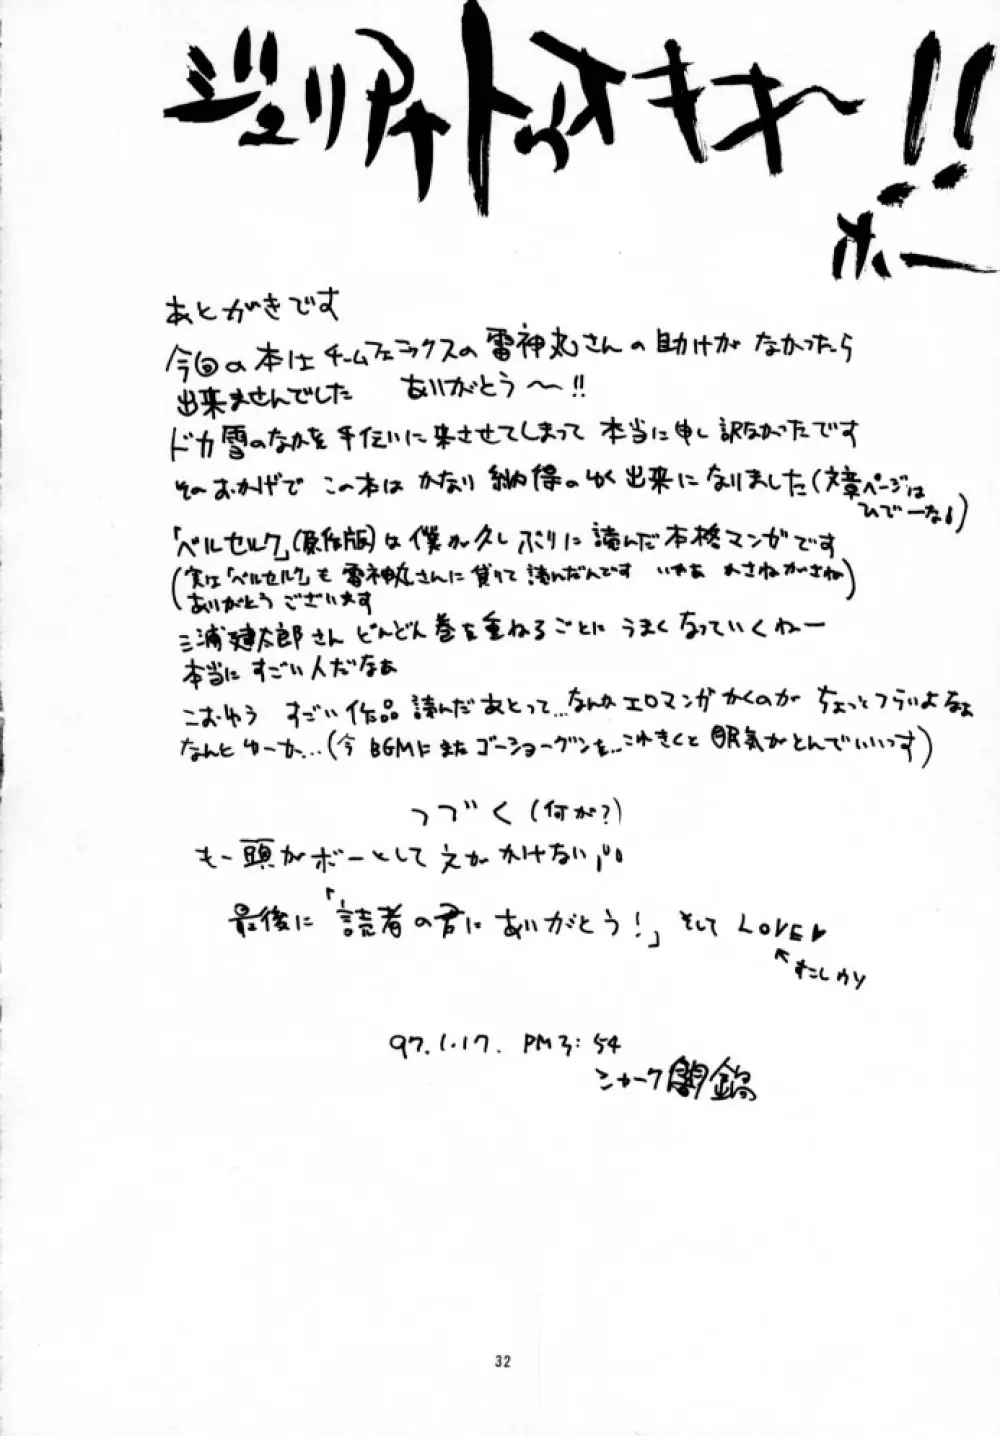 あとがきです
今回の本はチームフェニックスの雷神丸さんの助けがなかったら
出来ませんでした ありがとう〜!!
ドカ雪のなかを手伝いに来させてしまって本当に申し訳なかったです
そのおかげでこの本はかなり納得のゆく出来になりました(文章ページは
ひでーなぁ)
「ベルセルク」(原作版)は僕が久しぶりに読んだ本格マンガです
(実は「ベルセルク」も雷神丸さんに貸りて読んだんです いやあ かさねがさね
ありがとうございます)
三浦建太郎さん どんどん巻を重ねるごとにうまくなっていくねー
本当にすごい人だなぁ
こおゆう すごい作品読んだあとって...なんかエロマンガかくのがちょっとつらいよなぁ
なんとゆーか...(今BGMにまたゴーショーグンを...これきくと眠気がとんでいいっす)
つづく(何が?)
もー頭がボーとしてえがかけない
最後に「読者の君にありがとう!」そして LOVE♥
←すこしウソ
97.1.17. PM3:54
シャーク闇鍋
32